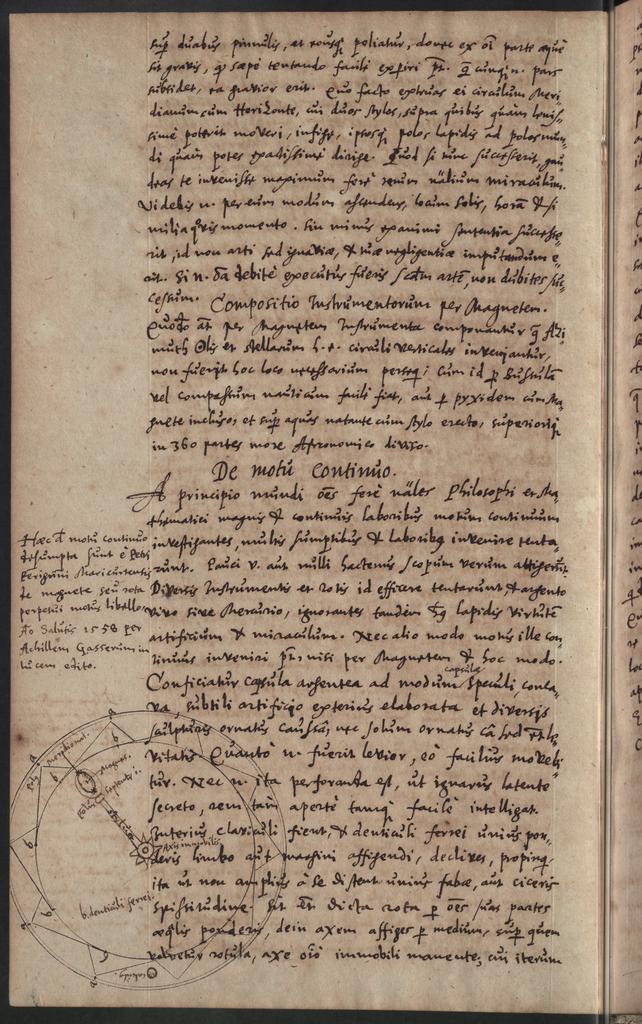 sup duabus pinnulis, et rousq poliatur, donec ex oi parte aequè
sit gravis, qd saepè tentando facilè experiri pt. q cunq n. pars
subsidet, ea gravior erit. Quo facto extruas ei circulum Meri¬
dianum cum Horizonte, cui duos stylos, supra quibus quàm levis¬
simè poterit moveri, infige, ipsosq polos lapidis ad polos mun¬
di quàm potes exactissimè dirige. Quod si tunc successerit, gau
deas te invenisse maximum ferè rerum nâlium miraculum.
Videbis n. per eum modum ascendens, locum Solis, horā & si
milia qvis momento. Sin minus ex animi sententia successe¬
rit, id non arti sed ignaviae, & tuae negligentiae imputandum e¬
rit. Si n. oīa debitè executus fueris scdm artē, non dubites suc¬
cessum. Compositio Instrumentorum per Magnetem.
Quōdo āt per Magnetem Instrumenta componantur q Azi
muth Solis et stellarum h. e. circuli verticales inveniantur,
non fuerit hoc loco necessarium perseq; cum id p Bussulā
vel compassum nauticum facilè fiat, aut p pyxidem cum Ma¬
gnete incluso, et sup aquas natante cum stylo erecto, superioriq
in 360 partes more Astronomico diviso.
De motu continuo.
A principio mundi oēs ferè nāles Philosophi et Ma
thematici magnis & continuis laboribus motum continuum
investigantes, multis sumptibus & laboribq invenire tenta¬
runt. Pauci v. aut nulli hactenus scopum verum attigerūt.
Diversis Instrumentis et rotis id efficere tentarunt & argento
vivo sive Mercurio, ignorantes tandem hq lapidis virtutē
artificium & miraculum. Nec alio modo motus ille con
tinuus inveniri pt. nisi per Magnetem & hoc modo.
capsulae
Conficiatur capsula argentea ad modum speculi conca
va, subtili artificio exterius elaborata et diversis
sculpturis ornatus caussâ; nec solum ornatus câ sed et le
vitatis Quantò n. fuerit levior, eò facilius movebi
tur. Nec n. ita perforanda est, ut ignarus latente
secreto, rem tam apertè tamq facilè intelligat.
Interius claviculi fient, & denticuli ferrei unius pon¬
deris limbo aut margini affigendi, declives, propinq¬
ita ut non amplius à se distent unius fabae, aut ciceris
spissitudine. Sit ēn dicta rota p oēs suas partes
aeqlis ponderis, dein axem affiges p medium, sup quem
volvetur rotula, axe oīo immobili manente; cui iterum
Haec d motu continuo
desumpta sunt è Petri
Perigrini Maricurtensis
de magnete seu rota
perpetui motus libello
Ao Salutis 1558 per
Achillem Gasserum in
lucem edito.
a
b
b
Magnes.
Axis immobilis
b. denticuli ferrei
b
b
b
a
a